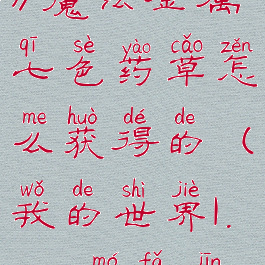 魔法金属
qī sè yào cǎo zěn
七色药草怎
me huò dé de
么获得的（
wǒ de shì jiè
我的世界1.
mó fǎ jīn